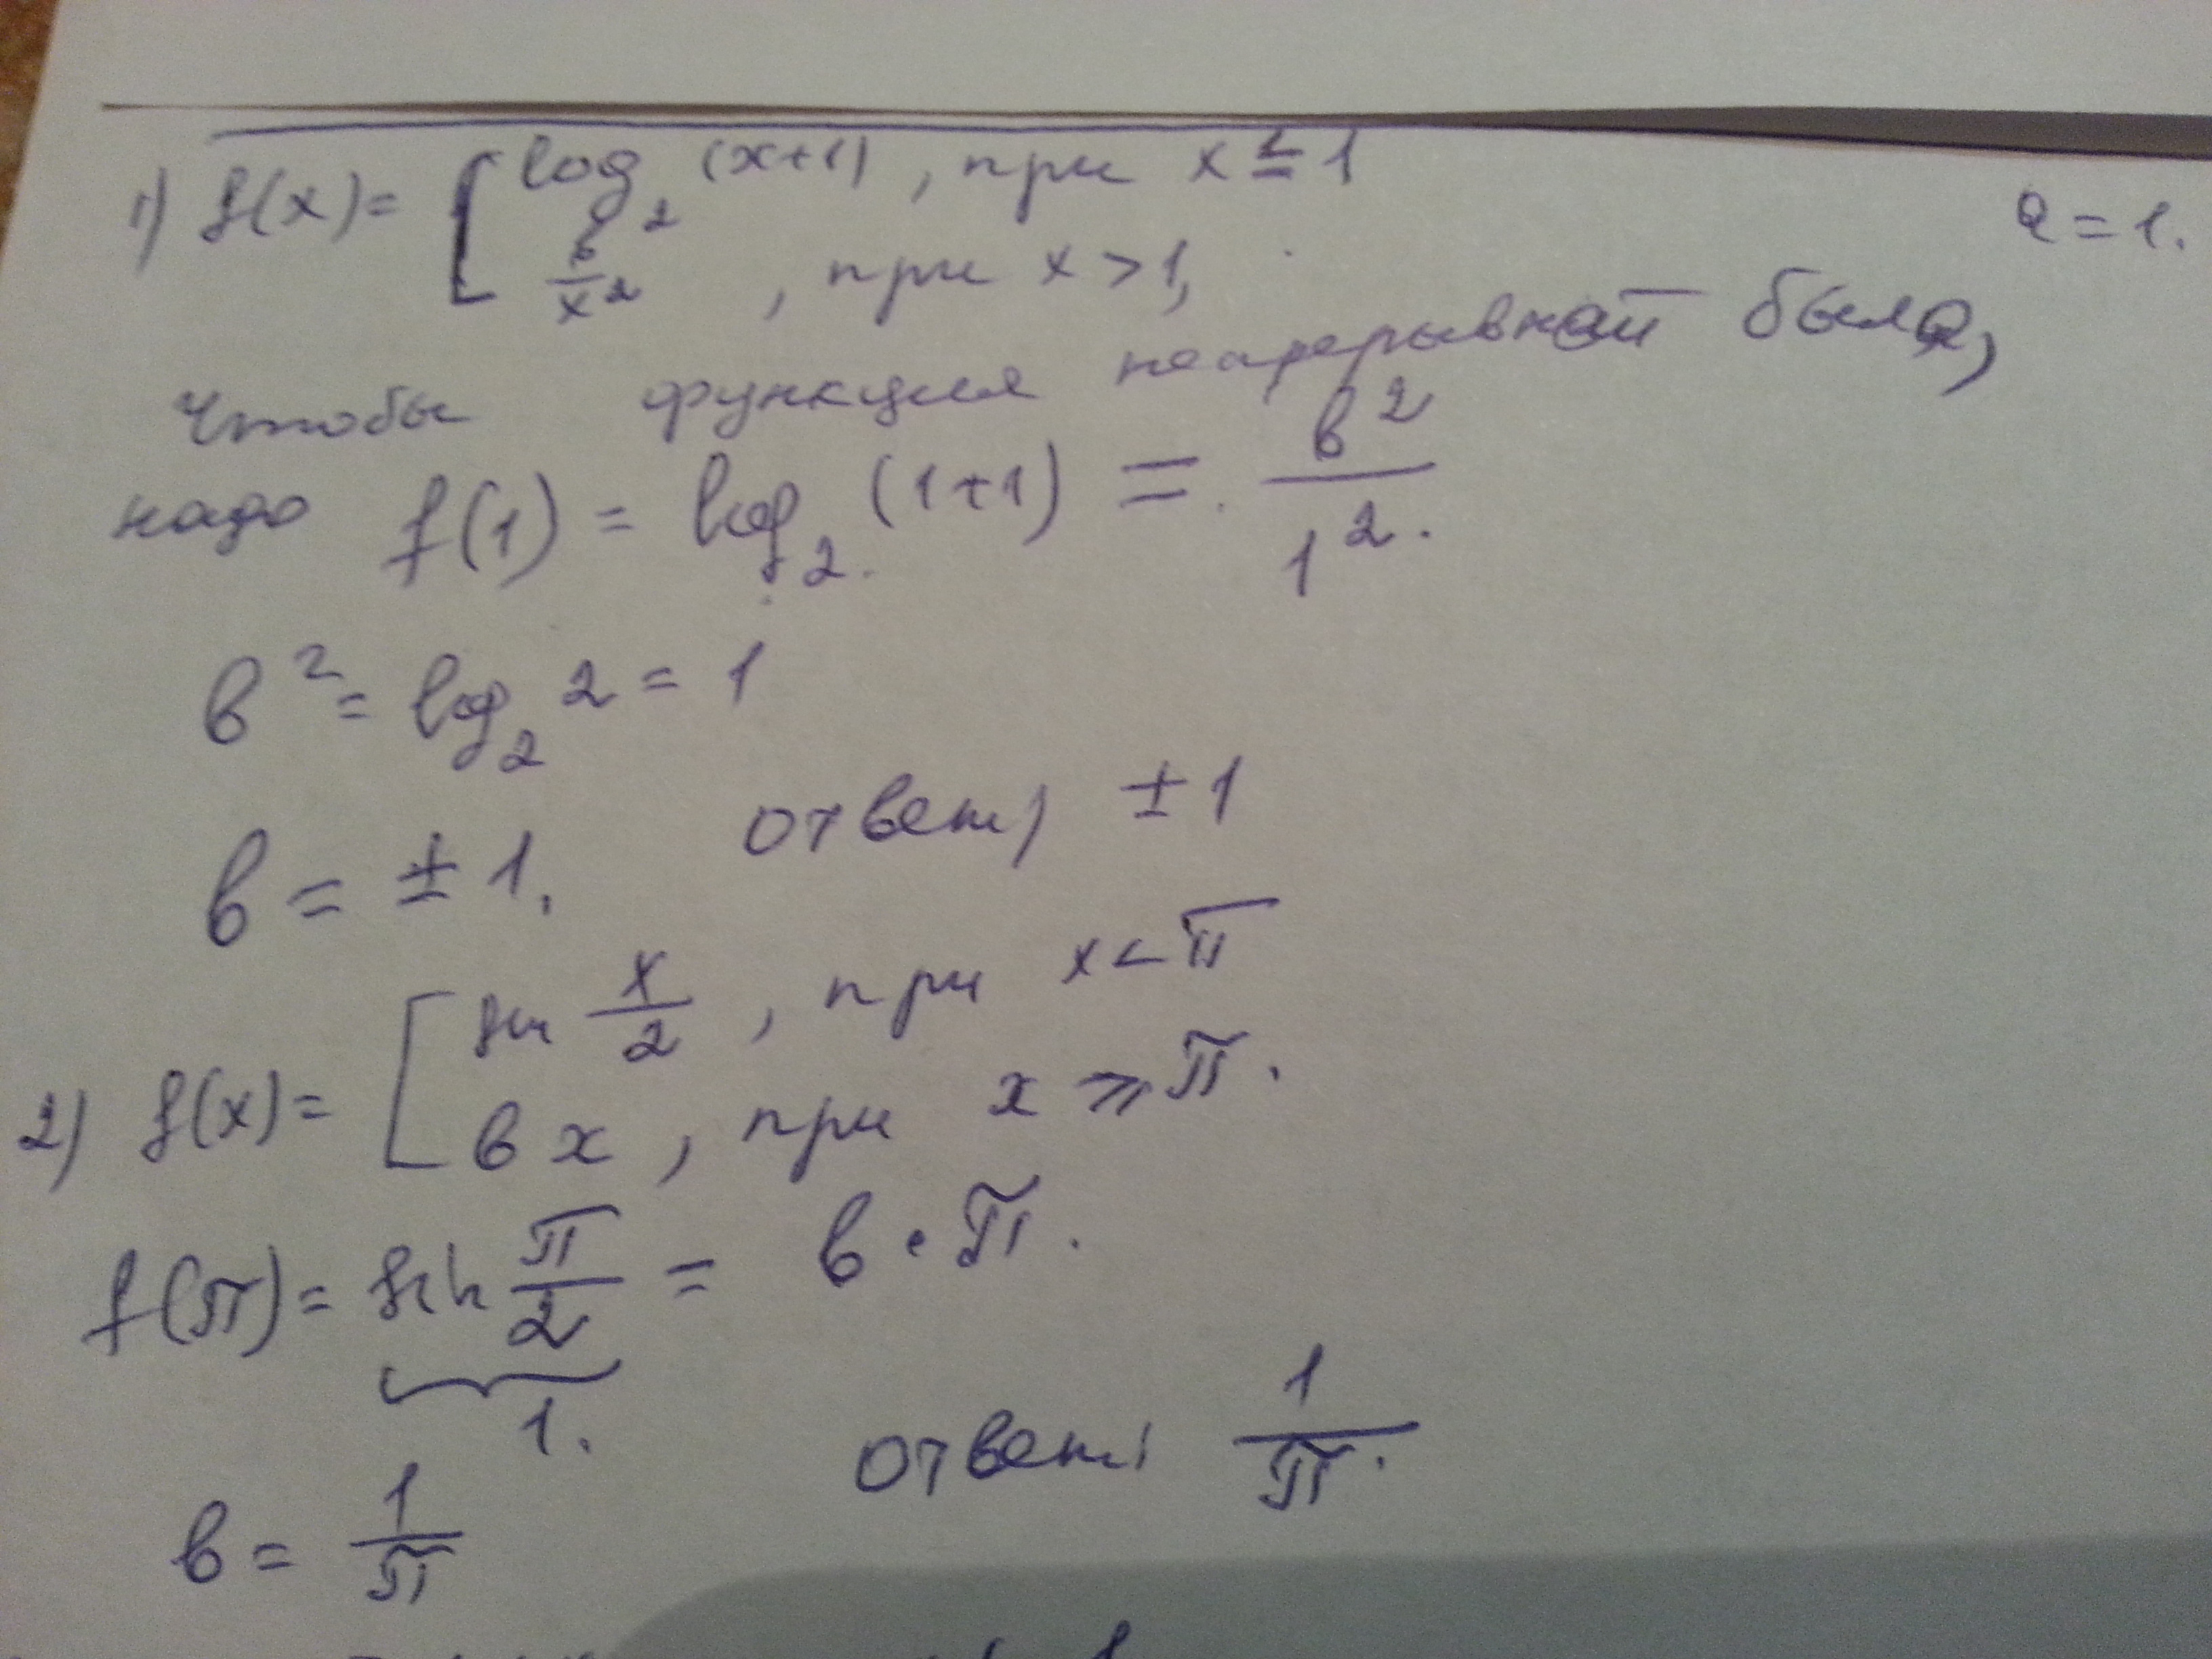 1) f(x) = [ log₂ (x+1), при x ≤ 1
a = 1.
в/x², при x > 1,
Чтобы функция непрерывной была,
надо f(1) = log₂. (1+1) = в²/1².
в² = log₂ 2 = 1
в = ± 1. ответ: ± 1
2) f(x) = [ sin x/2, при x < π
в x, при x ≥ π.
f(π) = sin π/2 = в · π.
1.
в = 1/π ответ: 1/π.